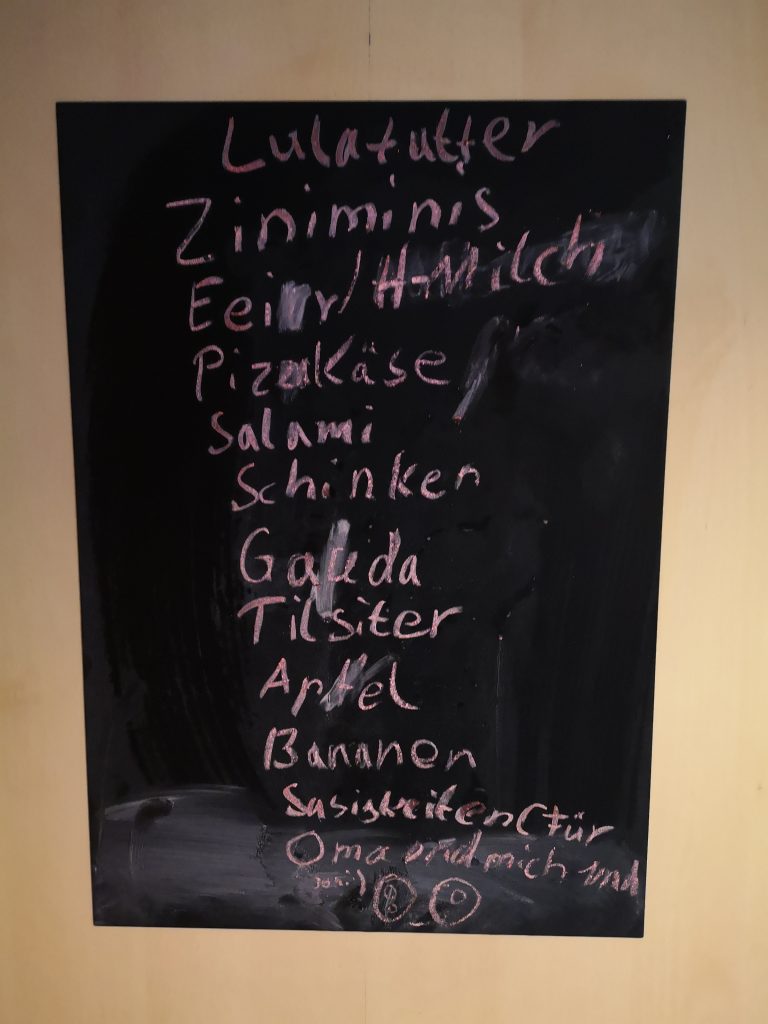 Lulafutter
Ziniminis
Eeier/H-Milch
Pizakäse
Salami
Schinken
Gauda
Tilsiter
Apfel
Bananen
Sasigkeiten (für
Oma und mich und